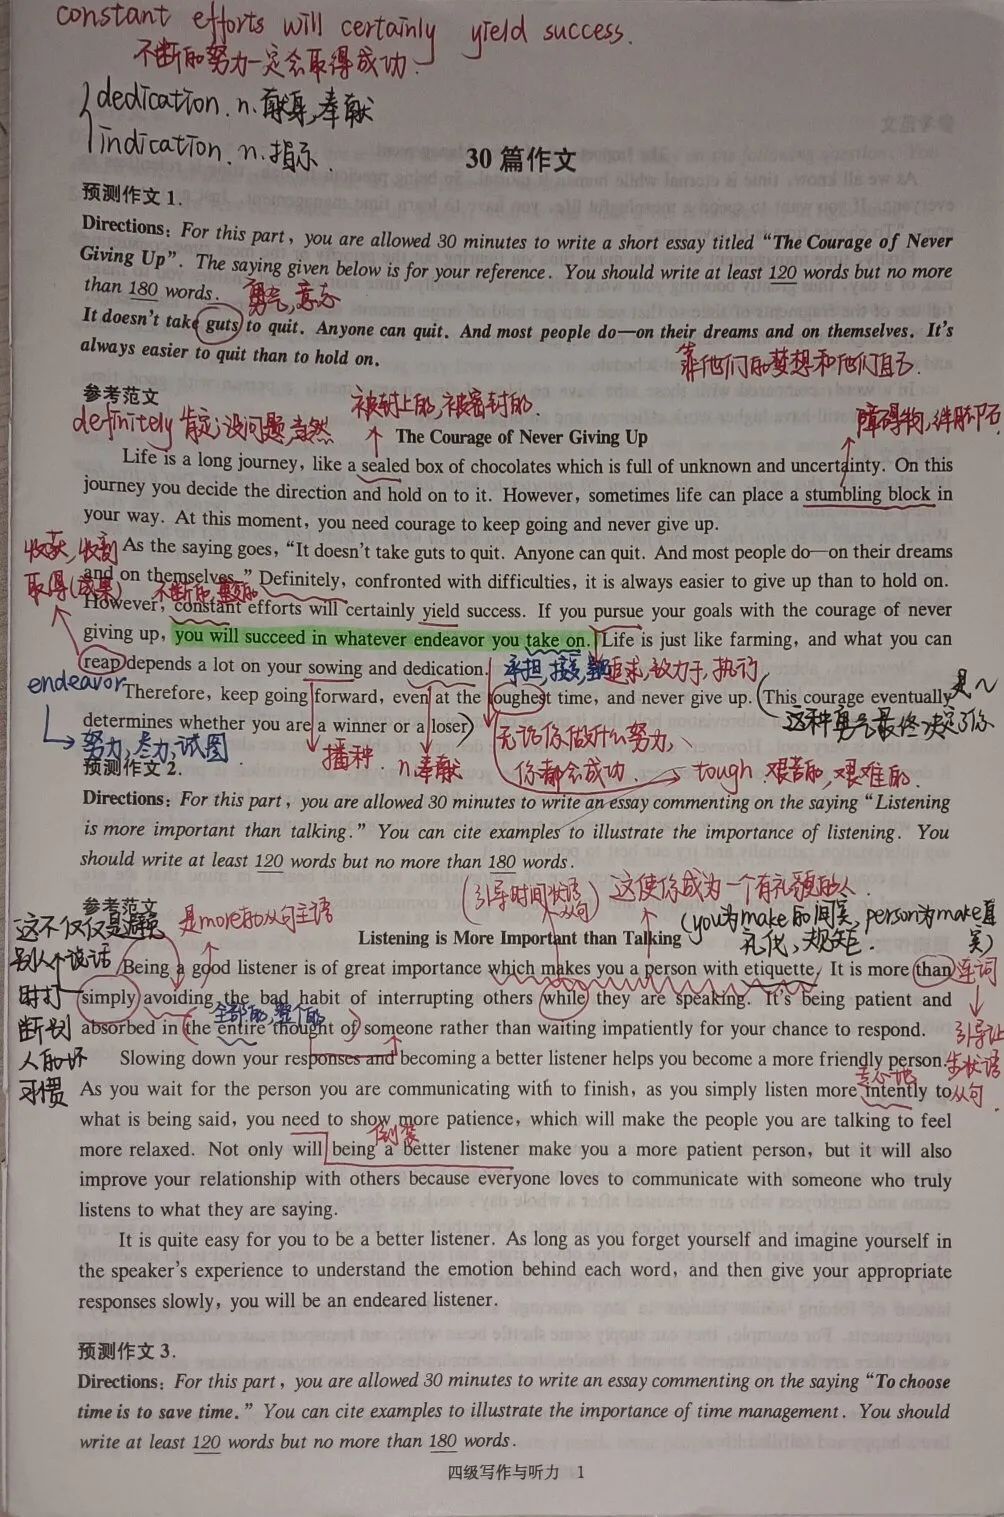 constant efforts will certainly yield success.
不断的努力一定会取得成功.
dedication. n. 献身,奉献
indication. n. 指示.
30篇作文
预测作文1.
Directions: For this part, you are allowed 30 minutes to write a short essay titled “The Courage of Never
Giving Up”. The saying given below is for your reference. You should write at least 120 words but no more
than 180 words.
勇气,意志
It doesn't take guts to quit. Anyone can quit. And most people do—on their dreams and on themselves. It's
always easier to quit than to hold on.
靠他们的梦想和他们自己.
参考范文
definitely 肯定,没问题,当然
被封上的,被密封的.
障碍物,绊脚石
The Courage of Never Giving Up
Life is a long journey, like a sealed box of chocolates which is full of unknown and uncertainty. On this
journey you decide the direction and hold on to it. However, sometimes life can place a stumbling block in
your way. At this moment, you need courage to keep going and never give up.
收获,收割
取得(成果)
As the saying goes, “It doesn't take guts to quit. Anyone can quit. And most people do—on their dreams
and on themselves.” Definitely, confronted with difficulties, it is always easier to give up than to hold on.
不断的,
However, constant efforts will certainly yield success. If you pursue your goals with the courage of never
giving up, you will succeed in whatever endeavor you take on. Life is just like farming, and what you can
reap depends a lot on your sowing and dedication.
承担,接受,
追求,致力于,执行
endeavor
努力,尽力,试图
Therefore, keep going forward, even at the toughest time, and never give up. This courage eventually
determines whether you are a winner or a loser.
是~
这种勇气最终决定了你
播种
n.奉献
无论你做什么努力、
你都会成功.
tough 艰苦的,艰难的
预测作文2.
Directions: For this part, you are allowed 30 minutes to write an essay commenting on the saying “Listening
is more important than talking.” You can cite examples to illustrate the importance of listening. You
should write at least 120 words but no more than 180 words.
参考范文
(引导时间状语从句)
这使你成为一个有礼貌的人.
是more的从句主语
(you为make的间宾,person为make直宾)
礼仪,规矩.
这不仅仅是避免
别人个说话
时打
断别
人的坏
习惯
Listening is More Important than Talking
Being a good listener is of great importance which makes you a person with etiquette. It is more than
连词
引导让
步状语
从句.
simply avoiding the bad habit of interrupting others while they are speaking. It's being patient and
全部的,整个的
absorbed in the entire thought of someone rather than waiting impatiently for your chance to respond.
Slowing down your responses and becoming a better listener helps you become a more friendly person.
专心地
As you wait for the person you are communicating with to finish, as you simply listen more intently to
what is being said, you need to show more patience, which will make the people you are talking to feel
倒装
more relaxed. Not only will being a better listener make you a more patient person, but it will also
improve your relationship with others because everyone loves to communicate with someone who truly
listens to what they are saying.
It is quite easy for you to be a better listener. As long as you forget yourself and imagine yourself in
the speaker's experience to understand the emotion behind each word, and then give your appropriate
responses slowly, you will be an endeared listener.
预测作文3.
Directions: For this part, you are allowed 30 minutes to write an essay commenting on the saying “To choose
time is to save time.” You can cite examples to illustrate the importance of time management. You should
write at least 120 words but no more than 180 words.
四级写作与听力 1